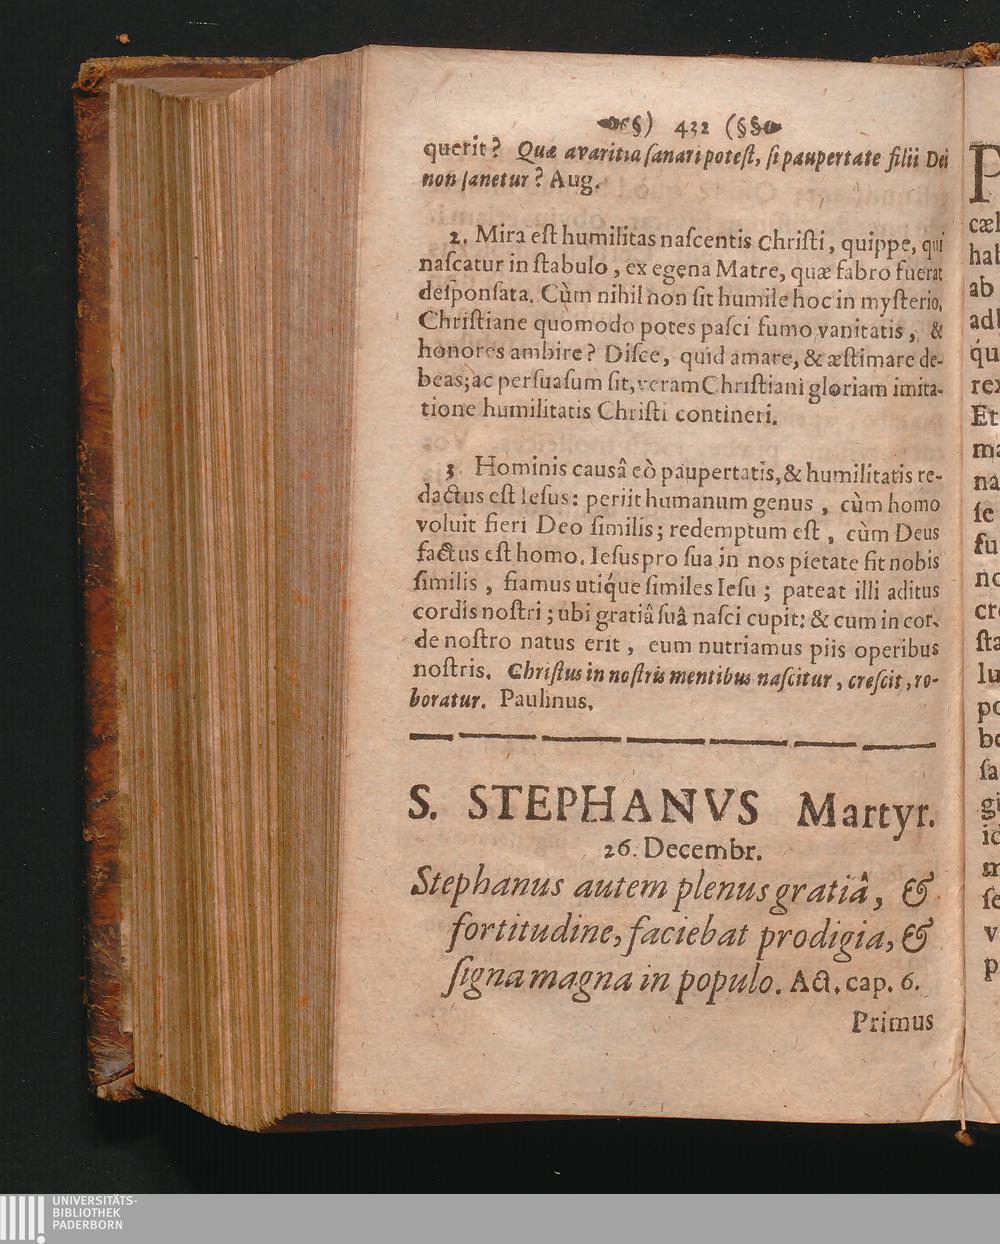 §) 432 (§§
querit? Quæ avaritia ſanari poteſt, ſi paupertate filii Dei
non ſanetur? Aug.
2. Mira eſt humilitas naſcentis Chriſti, quippe, qui
naſcatur in ſtabulo, ex egena Matre, quæ fabro fuerat
deſponſata. Cùm nihil non ſit humile hoc in myſterio,
Chriſtiane quomodo potes paſci fumo vanitatis, &
honores ambire? Diſce, quid amare, & æſtimare de-
beas; ac perſuaſum ſit, veram Chriſtiani gloriam imita-
tione humilitatis Chriſti contineri.
3. Hominis causâ eò paupertatis, & humilitatis re-
dactus eſt Ieſus: periit humanum genus, cùm homo
voluit fieri Deo ſimilis; redemptum eſt, cùm Deus
factus eſt homo. Ieſus pro ſua in nos pietate fit nobis
ſimilis, fiamus utiq́ue ſimiles Ieſu; pateat illi aditus
cordis noſtri; ubi gratiâ ſuâ naſci cupit: & cum in cor-
de noſtro natus erit, eum nutriamus piis operibus
noſtris. Chriſtus in noſtris mentibus naſcitur, creſcit, ro-
boratur. Paulinus.
S. STEPHANVS Martyr.
26. Decembr.
Stephanus autem plenus gratiâ, &
fortitudine, faciebat prodigia, &
ſigna magna in populo. Act. cap. 6.
Primus
cæl
hab
ab
adl
q́u
rex
Et
ma
na
ſe
fu
no
cre
ſta
lu
po
be
ſa
gi
id
m
ſe
v
p
UNIVERSITÄTS-
BIBLIOTHEK
PADERBORN